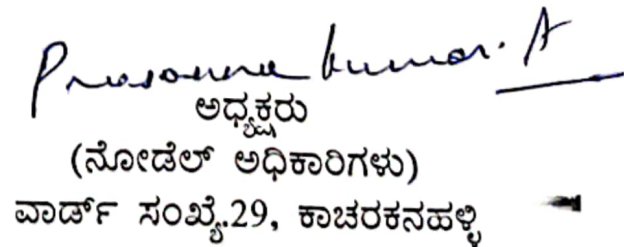 Prasanna kumar. A
ಅಧ್ಯಕ್ಷರು
(ನೋಡೆಲ್ ಅಧಿಕಾರಿಗಳು)
ವಾರ್ಡ್ ಸಂಖ್ಯೆ.29, ಕಾಚರಕನಹಳ್ಳಿ